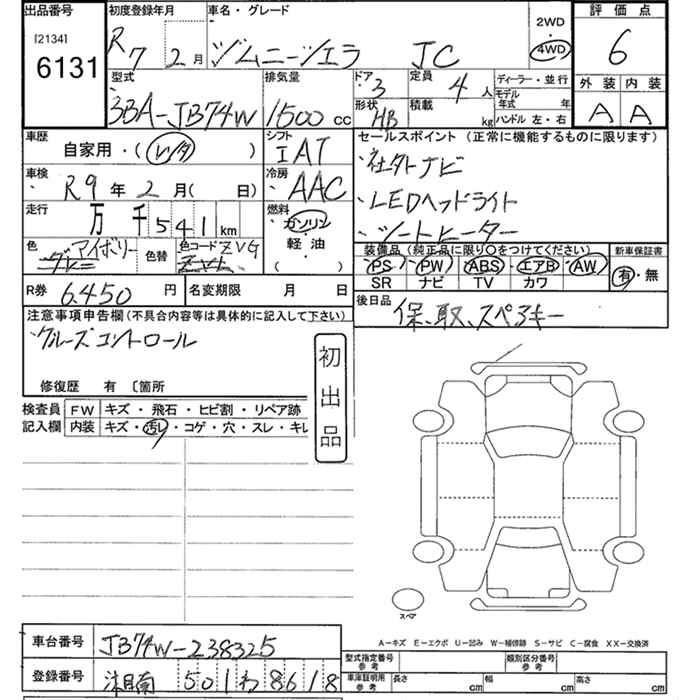 出品番号 初度登録年月 車名・グレード 2WD・4WD 評価点
[2134] 6131 R7 2月 ジムニーシエラ JC 6
型式 排気量 ドア 定員 ディーラー・並行 外装 内装
3BA-JB74W 1500cc 3 4人 モデル年式 年 A A
形状 HB 積載 kg ハンドル 左・右
車歴 シフト セールスポイント (正常に機能するものに限ります)
自家用・(レンタ) IAT 社外ナビ
車検 冷房 LEDヘッドライト
R9年2月(日) AAC シートヒーター
走行 燃料
万千541km ガソリン・軽油・( )
装備品(純正品に限り○をつけてください) 新車保証書
色 アイボリー 色替 色コード ZVG
PS PW ABS エアB AW 有・無
SR ナビ TV カワ
R券 6,450円 名変期限 月 日 後日品 保、取、スペアキー
注意事項申告欄(不具合内容等は具体的に記入して下さい)
クルーズコントロール
修復歴 有 〔箇所
初出品
検査員記入欄 FW キズ・飛石・ヒビ割・リペア跡
内装 キズ・汚レ・コゲ・穴・スレ・キレ
スペア
A-キズ E-エクボ U-凹み W-補修跡 S-サビ C-腐食 XX-交換済
車台番号 JB74W-238325
型式指定番号参考 類別区分番号参考
登録番号 湘南 501 わ 8618
車庫証明用参考 長さ cm 幅 cm 高さ cm